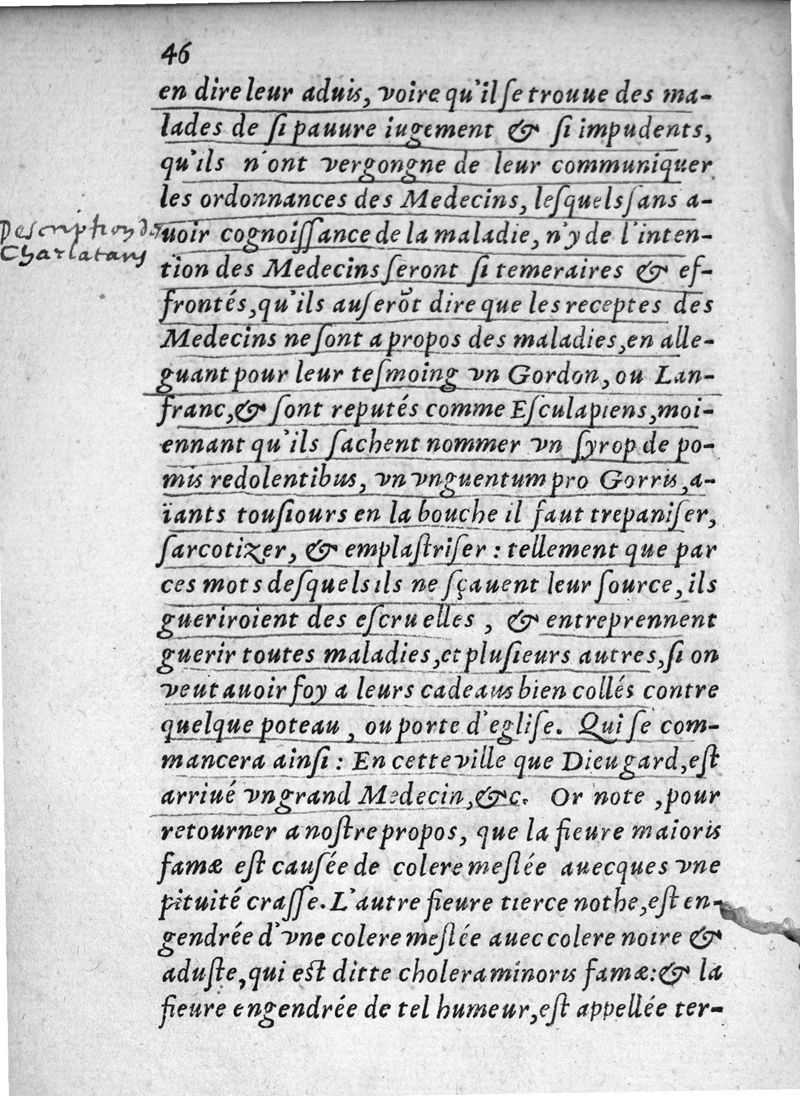 46
en dire leur aduis, voire qu'il ſe trouue des ma-
lades de ſi pauure iugement & ſi impudents,
qu'ils n'ont vergongne de leur communiquer
les ordonnances des Medecins, leſquels ſans a-
Description des
Charlatans
uoir cognoiſſance de la maladie, n'y de l'inten-
tion des Medecins ſeront ſi temeraires & ef-
frontés, qu'ils auſerōt dire que les receptes des
Medecins ne ſont a propos des maladies, en alle-
guant pour leur teſmoing vn Gordon, ou Lan-
franc, & ſont reputés comme Eſculapiens, moi-
ennant qu'ils ſachent nommer vn ſyrop de po-
mis redolentibus, vn vnguentum pro Gorris, a-
ïants touſiours en la bouche il faut trepaniſer,
ſarcotizer, & emplaſtriſer : tellement que par
ces mots deſquels ils ne ſçauent leur ſource, ils
gueriroient des eſcruelles, & entreprennent
guerir toutes maladies, et pluſieurs autres, ſi on
veut auoir foy a leurs cadeaus bien collés contre
quelque poteau, ou porte d'egliſe. Qui ſe com-
mancera ainſi : En cette ville que Dieu gard, eſt
arriué vn grand Medecin, &c. Or note, pour
retourner a noſtre propos, que la fieure maioris
famæ eſt cauſée de colere meſlée auecques vne
pituité craſſe. L'autre fieure tierce nothe, eſt en-
gendrée d'vne colere meſlée auec colere noire &
aduſte, qui eſt ditte cholera minoris famæ: & la
fieure engendrée de tel humeur, eſt appellée ter-